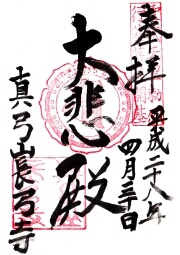 奉拝
平成二十八年
四月三十日
大悲殿
真弓山長弓寺